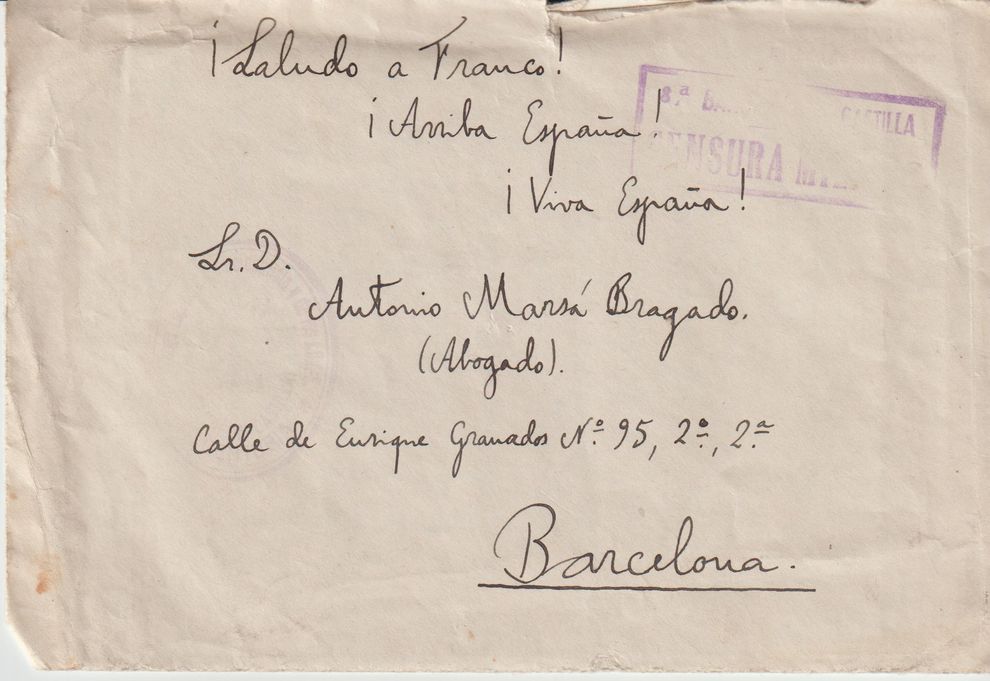 ¡Saludo a Franco!
¡Arriba España!
¡Viva España!
8ª CASTILLA
CENSURA
Sr. D.
Antonio Marsá Bragado.
(Abogado).
Calle de Enrique Granados Nº. 95, 2º., 2ª.
Barcelona.